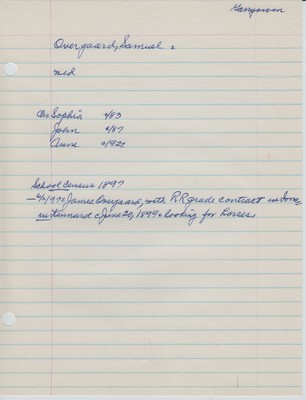 Garryowen
Overgaard, Samuel :
mcd
Ch: Sophia 4/83
John 4/87
Anne 9/92
School Census 1897
4/4 97: James Overgaard, with RR grade contract in Iowa,
in Kennard c June 20, 1899 looking for horses.